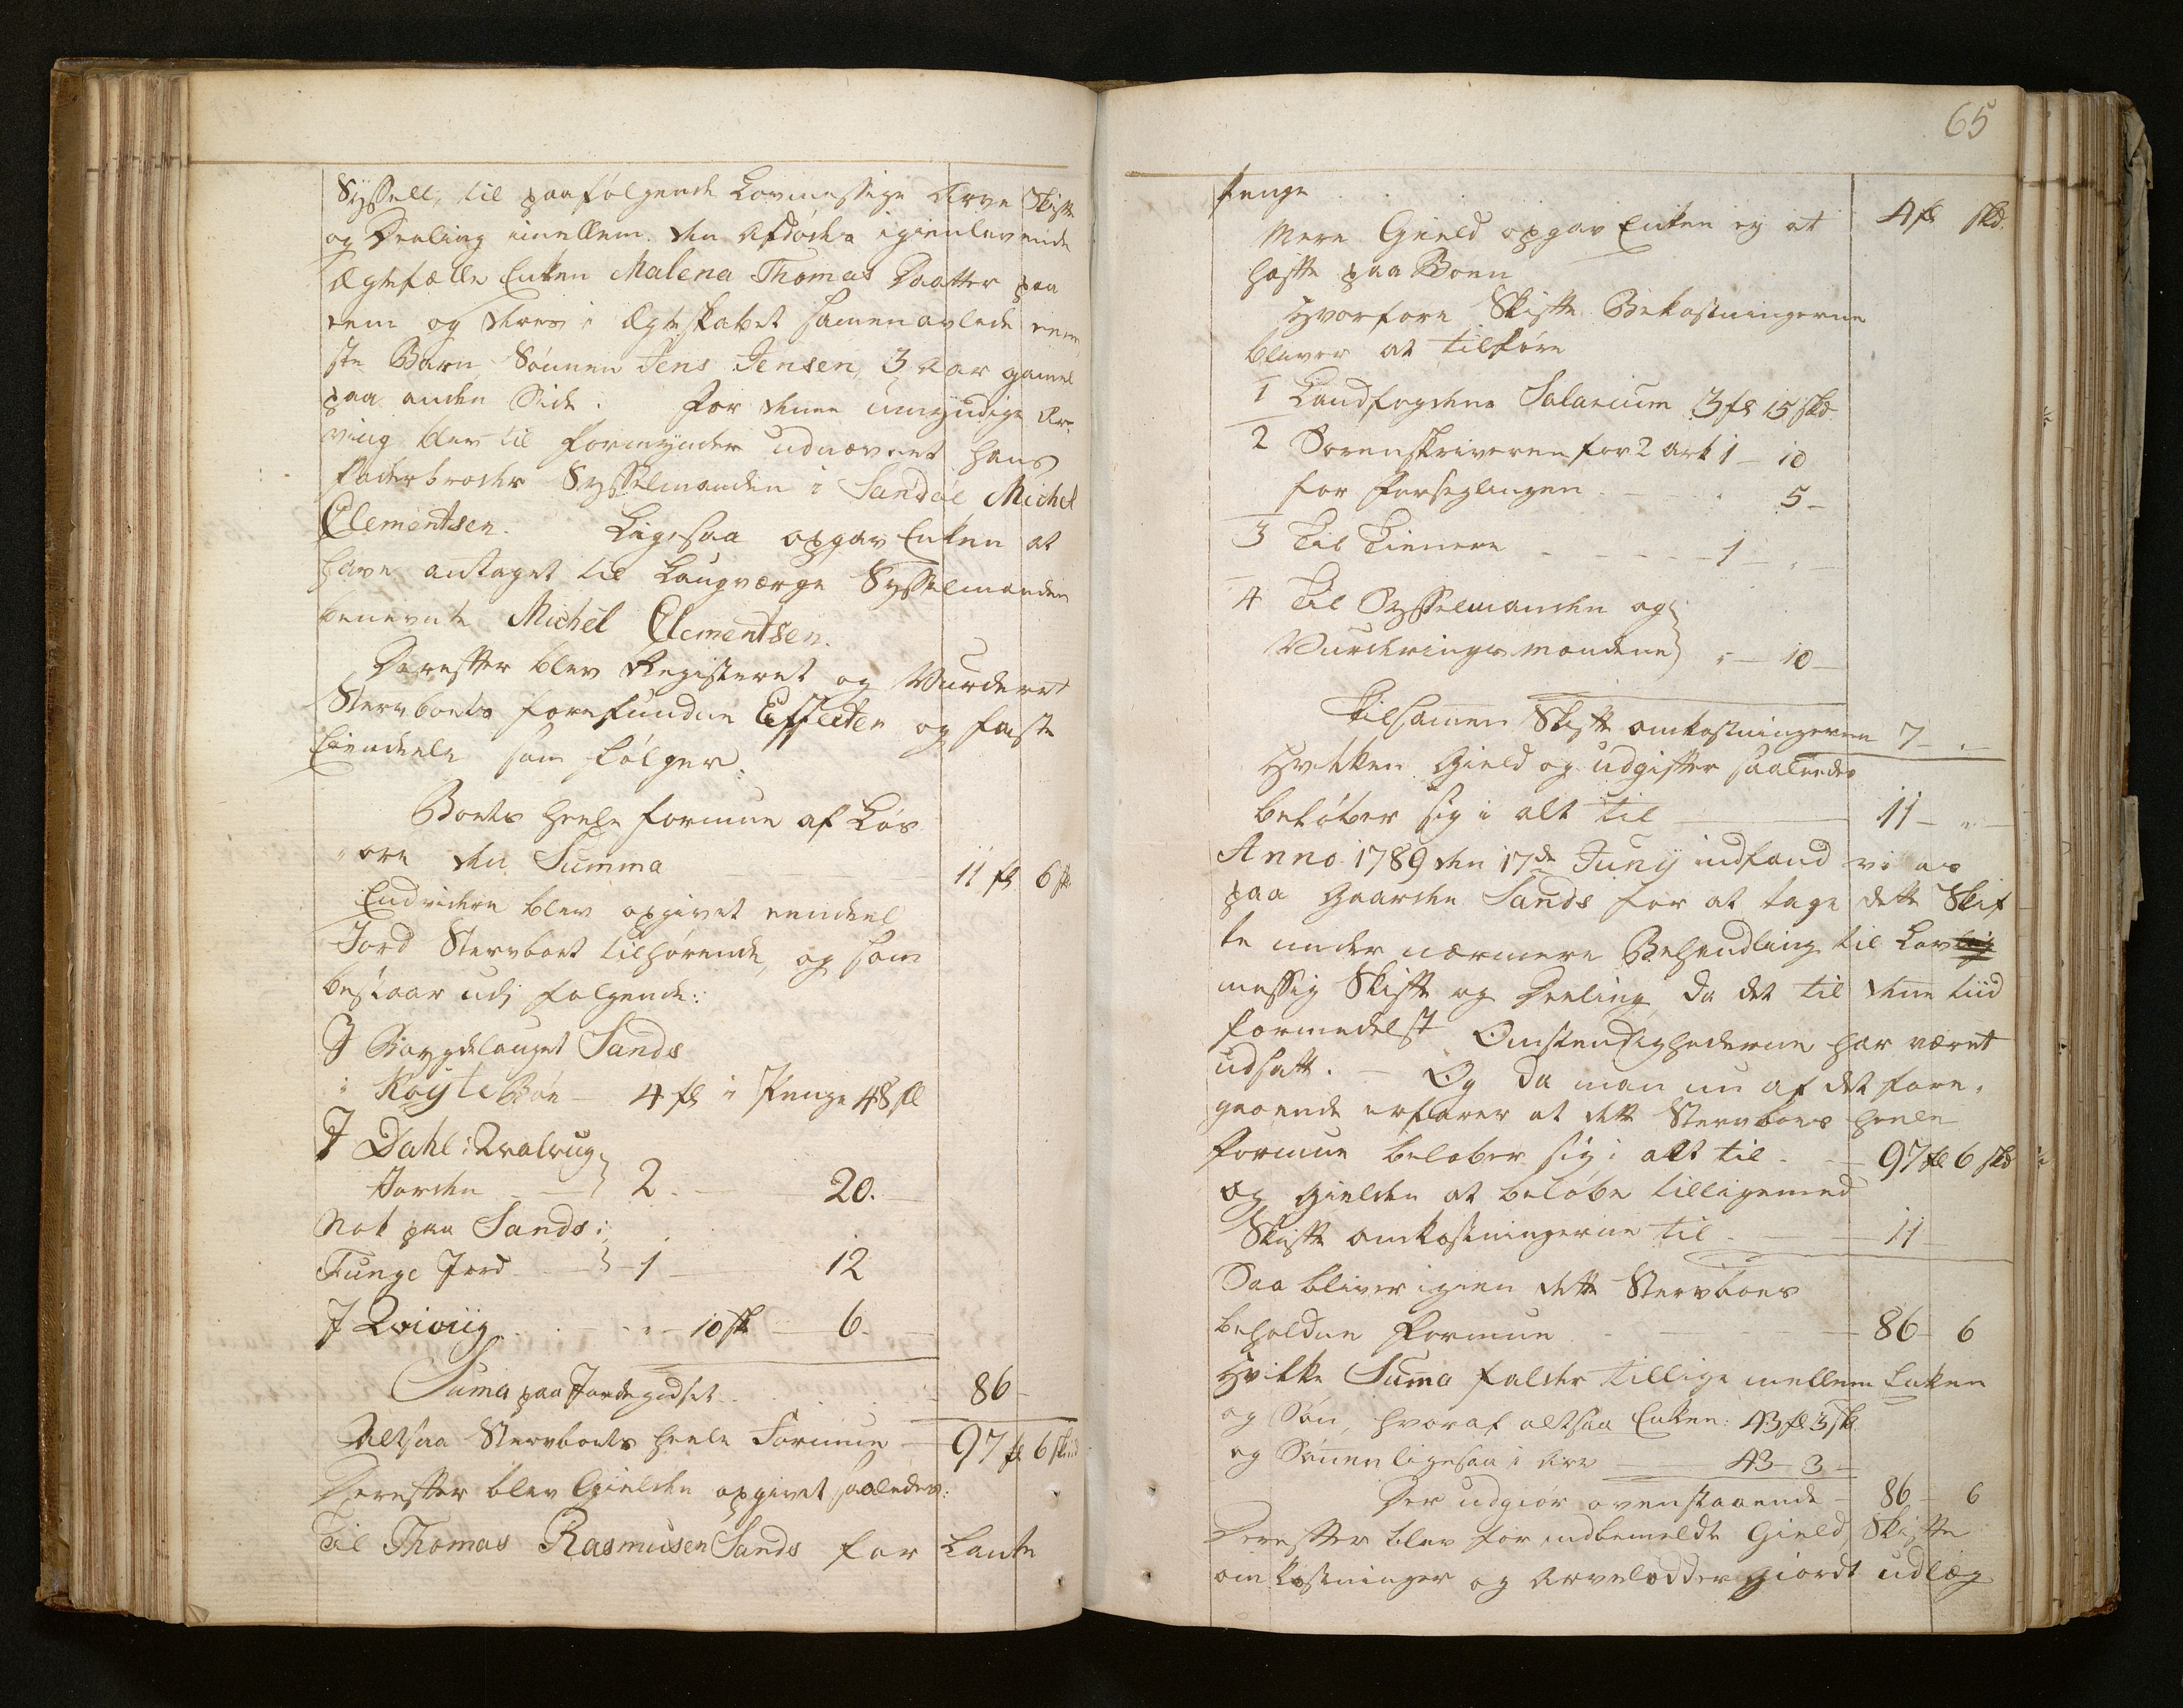 Syssell, til paafølgende Lovmessige Arve Skifte
og Deeling imellem den Afdødes igienlevende
Ægtefælle Enken Malena Thomas Daatter paa
eene og deres i Ægteskabet samenavlede eene
ste Barn Sønnen Jens Jensen, 3 Aar gamel
paa anden Side. For denne umyndige Ar-
ving blev til Formynder udnævnet hans
Faderbroder Sysselmanden i Sandöe, Michel
Clementsen. Ligesaa opgav Enken at
have antaget til Laugværge Sysselmanden
benevnte Michel Clementsen.
Derefter blev Registeret og Vurderet
Stervboets forefundne Effecter og faste
Eiendeele som følger:
Boets heele Formue af Løs
øre den Summa 11 fl 6 sk
Endvidere blev opgivet eendeel
Jord Stervboet tilhørende, og som
bestaar udi følgende:
I Boygdelauget Sands
i Røyle Bøe - 4 fl i Penge 48 fl
I Dahl: Qvalvug
Jorden - 2 - 20.
Nok paa Sands:
Funge Jord - 1 - 12
I Qvivvig - 10 sk - 6.
Suma paa Jordegodset 86 -
Altsaa Stervboets heele Formue - 97 fl 6 skind
Derefter blev Gielden opgivet saaledes:
Til Thomas Rasmusen Sands for Laante
65
Penge 4 fl skd.
Mere Gield opgav Enken ey at
hæfte paa Boen
Hvorfore Skifte Bekostningerne
bliver at tilføre
1 Landfogdens Salarium 3 fl 15 skd
2 Sorenskriveren for 2 Ark 1 - 10
for Forseglingen - 5 -
3 Til Tienere - 1 -
4 Til Sysselmanden og
Vurderings Mændene - 10 -
Tilsamen Skifte omkostningerne 7 -
Hvilken Gield og udgifter saaledes
beløber sig i alt til 11 -
Anno 1789 den 17de Junij indfand vi os
paa Gaarden Sands for at tage dette Skif
te under nærmere Behandling til Lov
messig Skifte og Deeling, da det til denne tiid
formedelst Omstendighederne har været
udsatt. - Og da man nu af det fore-
gaaende erfarer at dette Stervboes heele
Formue beløber sig i alt til - 97 fl 6 skd
og Gielden at beløbe tilligemed
Skifte omkostningerne til 11
Saa bliver igien dette Stervboes
beholdne Formue - 86 - 6
Hvilke Suma falder tillige mellem Enken
og Søn, hvoraf altsaa Enken: 43 fl 3 sk
og Sønnen ligesaa i Arv - 43 - 3 -
Der udgiør ovenstaaende - 86 - 6
Derefter blev for indbemeldte Gield, Skifte
omkostninger og Arvelodder giordt udlæg